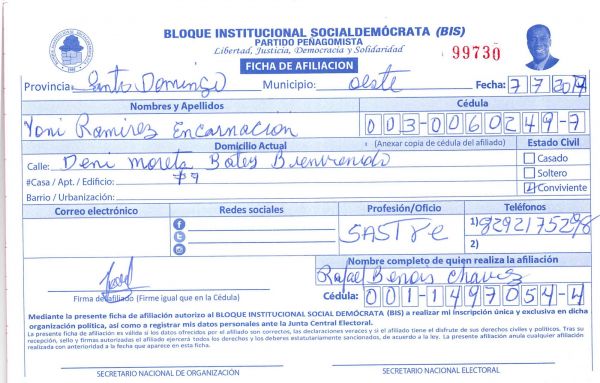 BLOQUE INSTITUCIONAL SOCIALDEMÓCRATA (BIS)
PARTIDO PEÑAGOMISTA
Libertad, Justicia, Democracia y Solidaridad
99730
FICHA DE AFILIACION
Provincia: Santo Domingo Municipio: oeste Fecha: 7 7 2014
Nombres y Apellidos Cédula
Yoni Ramirez Encarnacion 003-0060249-7
Domicilio Actual (Anexar copia de cédula del afiliado) Estado Civil
Calle: Deni moreta Batey Bienvenido
Casado
#Casa / Apt. / Edificio: #9
Soltero
Barrio / Urbanización:
Conviviente
Correo electrónico Redes sociales Profesión/Oficio Teléfonos
SASTre
1) 8292175298
2)
Nombre completo de quien realiza la afiliación
Rafael Chavez
Firma de afiliado (Firme igual que en la Cédula)
Cédula: 001-1497054-4
Mediante la presente ficha de afiliación autorizo al BLOQUE INSTITUCIONAL SOCIAL DEMÓCRATA (BIS) a realizar mi inscripción única y exclusiva en dicha
organización política, así como a registrar mis datos personales ante la Junta Central Electoral.
La presente ficha de afiliación es válida si los datos ofrecidos por el afiliado son correctos, las declaraciones veraces y si el afiliado tiene el disfrute de sus derechos civiles y políticos. Tras su
recepción, sello y firmas autorizadas el afiliado ejercerá todos los derechos y los deberes estatutariamente sancionados, de acuerdo a la ley. La presente afiliación anula cualquier afiliación
realizada con anterioridad a la fecha que aparece en esta ficha.
SECRETARIO NACIONAL DE ORGANIZACIÓN SECRETARIO NACIONAL ELECTORAL